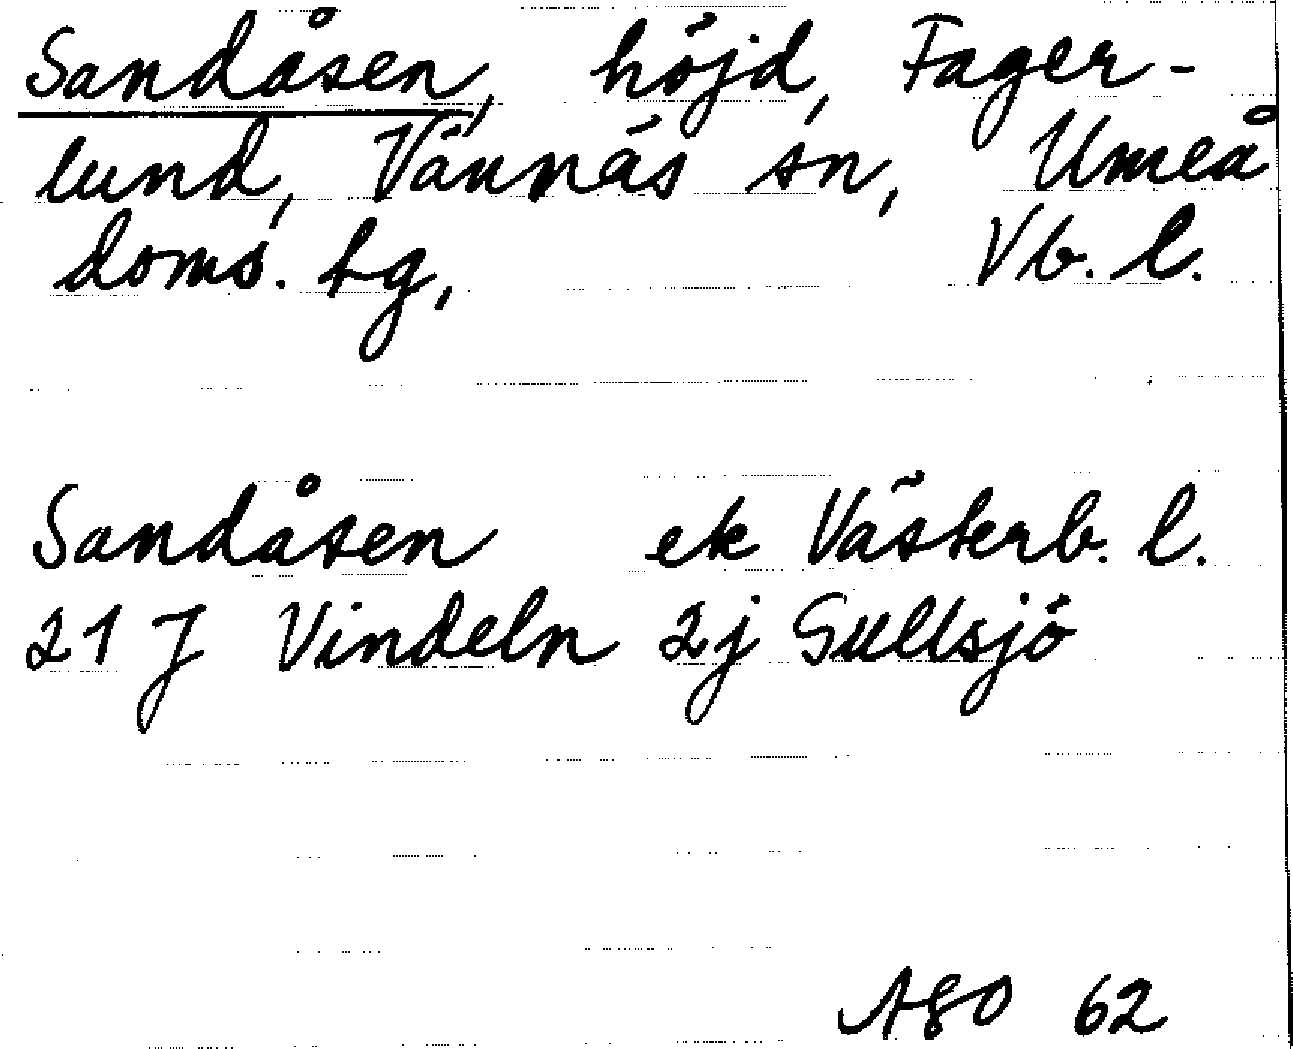 Sandåsen, höjd, Fager-
lund, Vännäs sn, Umeå
doms. hg, Vb. l.
Sandåsen ek Västerb. l.
21 J Vindeln 2j Gullsjö
ABO 62